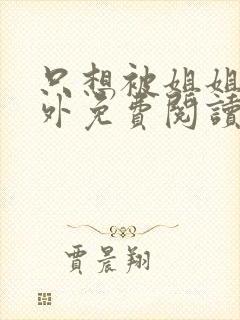 只想被姐姐
外免費閱讀
賈晨翔